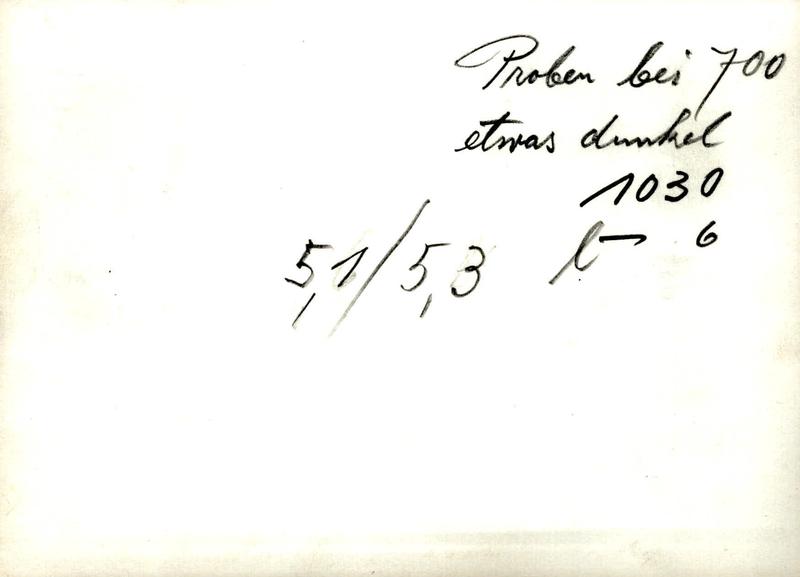 Proben bei 700
etwas dunkel
1030
5,1/5,3 l→ 6